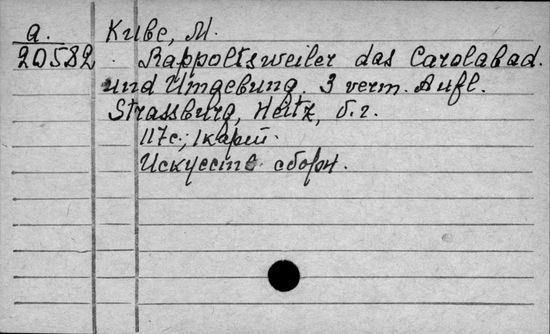 a.
20582
Kube, M.
Rappoltsweiler das Carolabad.
und Umgebung. 3 verm. Aufl.
Strassburg, Heitz, б.г.
117с.; 1карт.
Искусств. сборн.